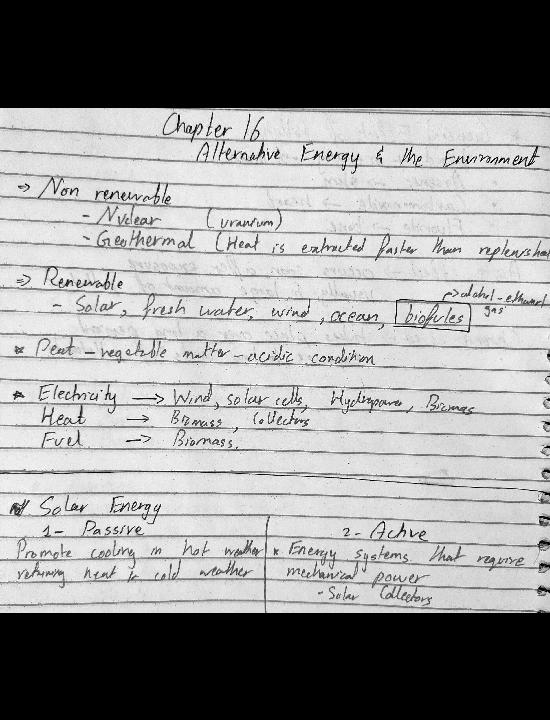 Chapter 16
Alternative Energy & the Environment
⇒ Non renewable
- Nuclear (uranium)
- Geothermal (Heat is extracted faster than replenished
⇒ Renewable
→ alcohol - ethanol
gas
- Solar, fresh water, wind, ocean, biofules
* Peat - vegetable matter - acidic condition
* Electricity → Wind, solar cells, Hydropower, Biomas
Heat → Biomass, Collectors
Fuel → Biomass.
Solar Energy
1- Passive
Promote cooling in hot weather
retuning heat in cold weather
2- Active
* Energy systems that require
mechanical power
- Solar Collectors